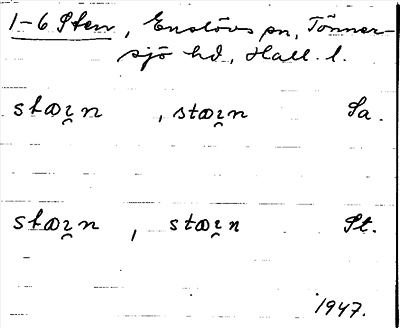 1-6 Sten, Enslövs sn, Tönner-
sjö hd, Hall. l.
stæi̯n, stæi̯n Sa.
stæi̯n, stæi̯n St.
1947.